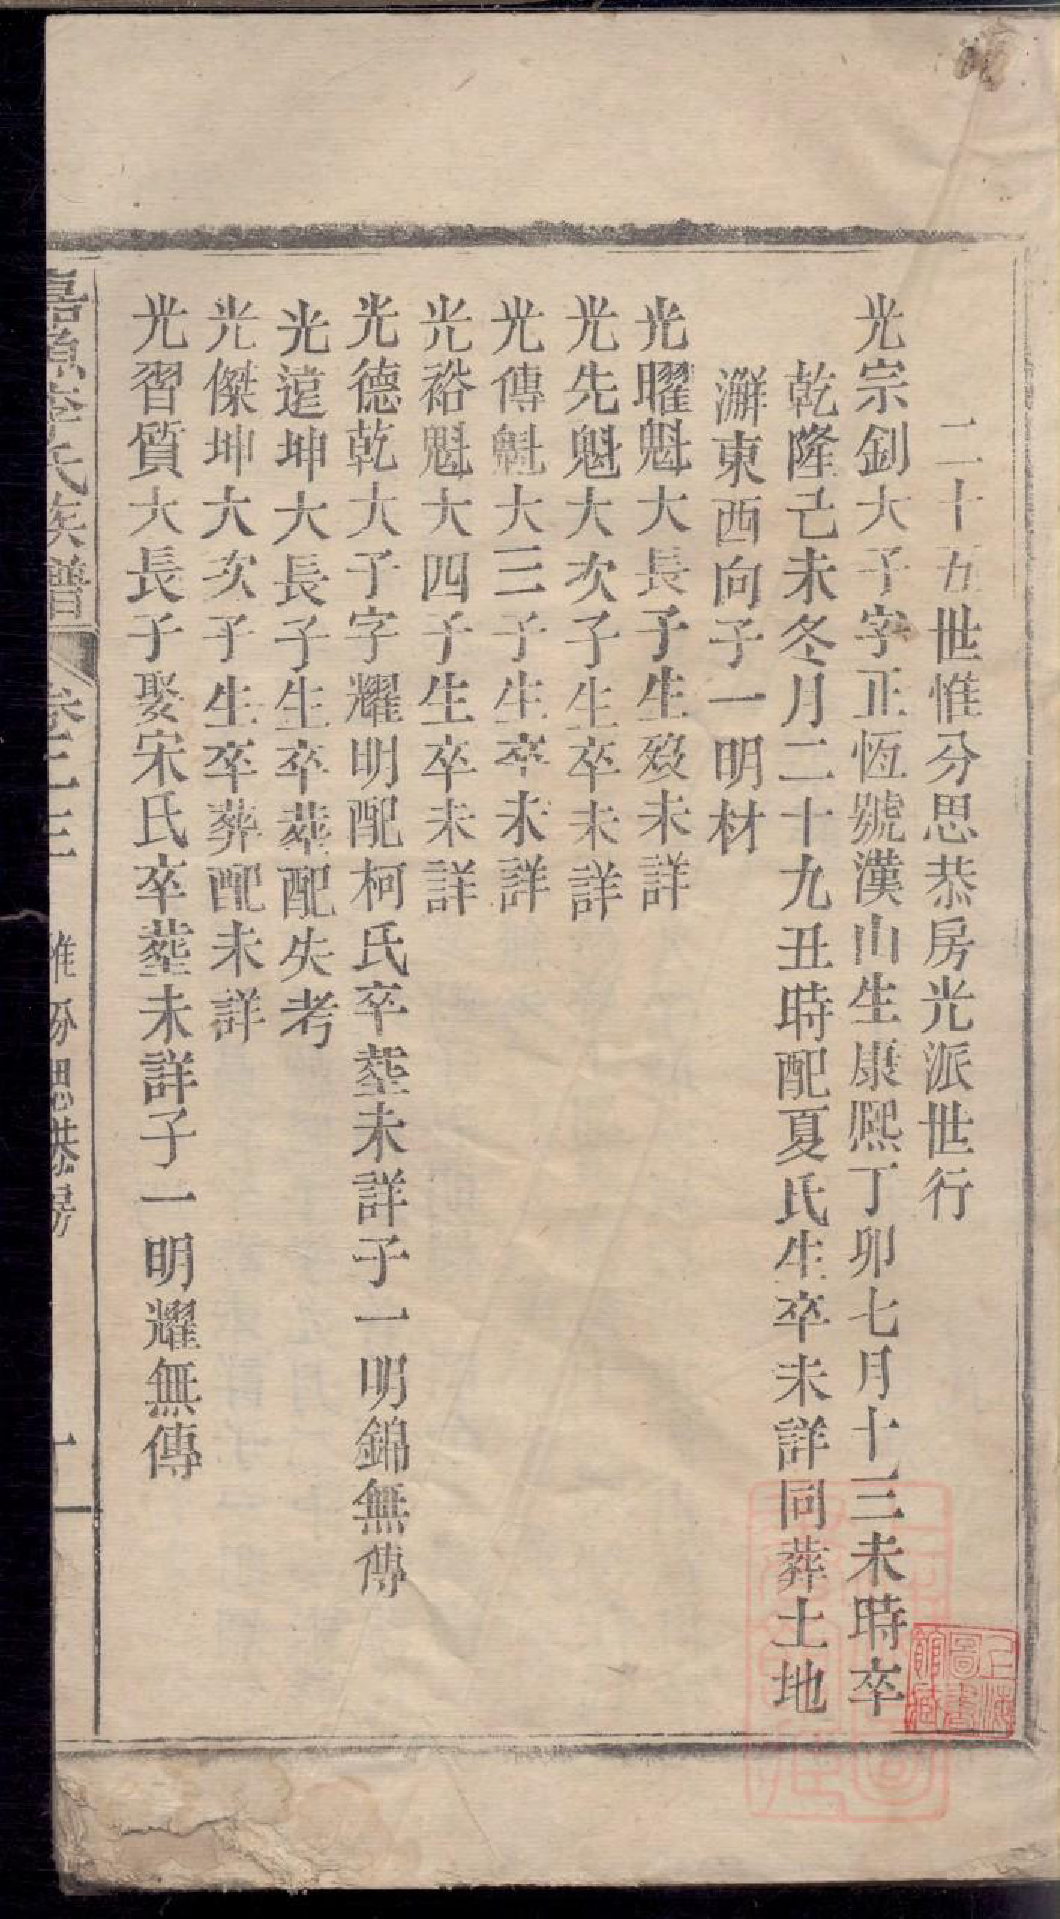 二十五世惟分思恭房光派世行
光宗釗大子字正恆號漢山生康熙丁卯七月十三未時卒
乾隆己未冬月二十九丑時配夏氏生卒未詳同葬土地
澥東西向子一明材
光曜魁大長子生歿未詳
光先魁大次子生卒未詳
光傳魁大三子生卒未詳
光裕魁大四子生卒未詳
光德乾大子字耀明配柯氏卒塟未詳子一明錦無傳
光遠坤大長子生卒葬配失考
光傑坤大次子生卒葬配未詳
光習質大長子娶宋氏卒塟未詳子一明耀無傳
嘉魚李氏族譜
卷之三 惟分思恭房 一
上海圖書館藏